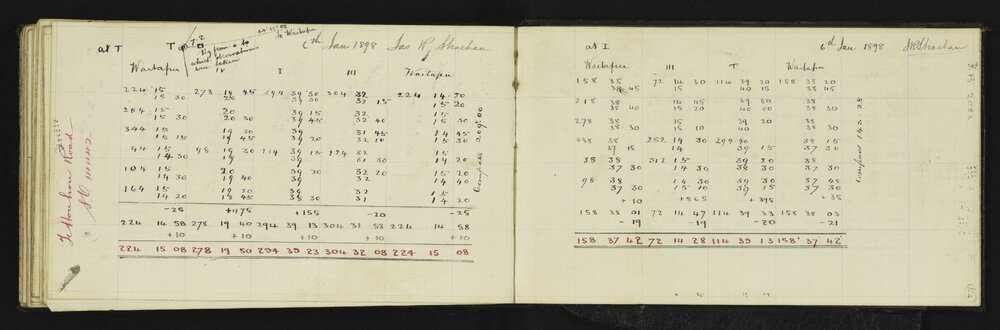 at T T
6th Jan 1898 Jas R Strachan
Peg from & to
which observations
were taken
to Waitapu
Waitapu I III Waitapu
224 15 278 19 45 294 39 30 304 32 224 14 50
15 30 20 39 30 32 15 15 20
284 15 20 39 15 32 15
15 30 20 30 39 45 32 40 15 30
344 15 19 30 39 31 45 14 45
15 15 19 30 39 20 32 10 15 30
44 15 98 19 30 114 39 15 124 32 15
14 30 19 39 31 30 14 20
104 15 20 39 30 32 20 15 20
14 30 19 40 39 32 14 40
164 15 19 30 39 32 15
14 20 18 45 38 30 31 14 20
-25 +475 +155 -20 -25
224 14 58 278 19 40 294 39 13 304 31 58 224 14 58
+10 +10 +10 +10 +10
224 15 08 278 19 50 294 39 23 304 32 08 224 15 08
Compass 209.00
Road
at I 6th Jan 1898 JR Strachan
Waitapu III T Waitapu
158 38 72 14 30 114 39 20 158 38 20
38 45 15 40 15 38 45
218 38 14 45 39 50 38
38 40 15 20 40 00 38 30
278 38 15 39 20 38
38 30 15 10 39 38 30
338 38 252 14 30 294 40 38 15
37 15 14 39 15 37 30
38 38 312 15 39 20 38
37 30 14 30 39 37 30
98 38 14 30 39 30 37 45
37 30 15 10 39 37 30
+10 +565 +395 +35
158 38 01 72 14 47 114 39 33 158 38 03
-19 -19 -20 -21
158 37 42 72 14 28 114 39 13 158 37 42